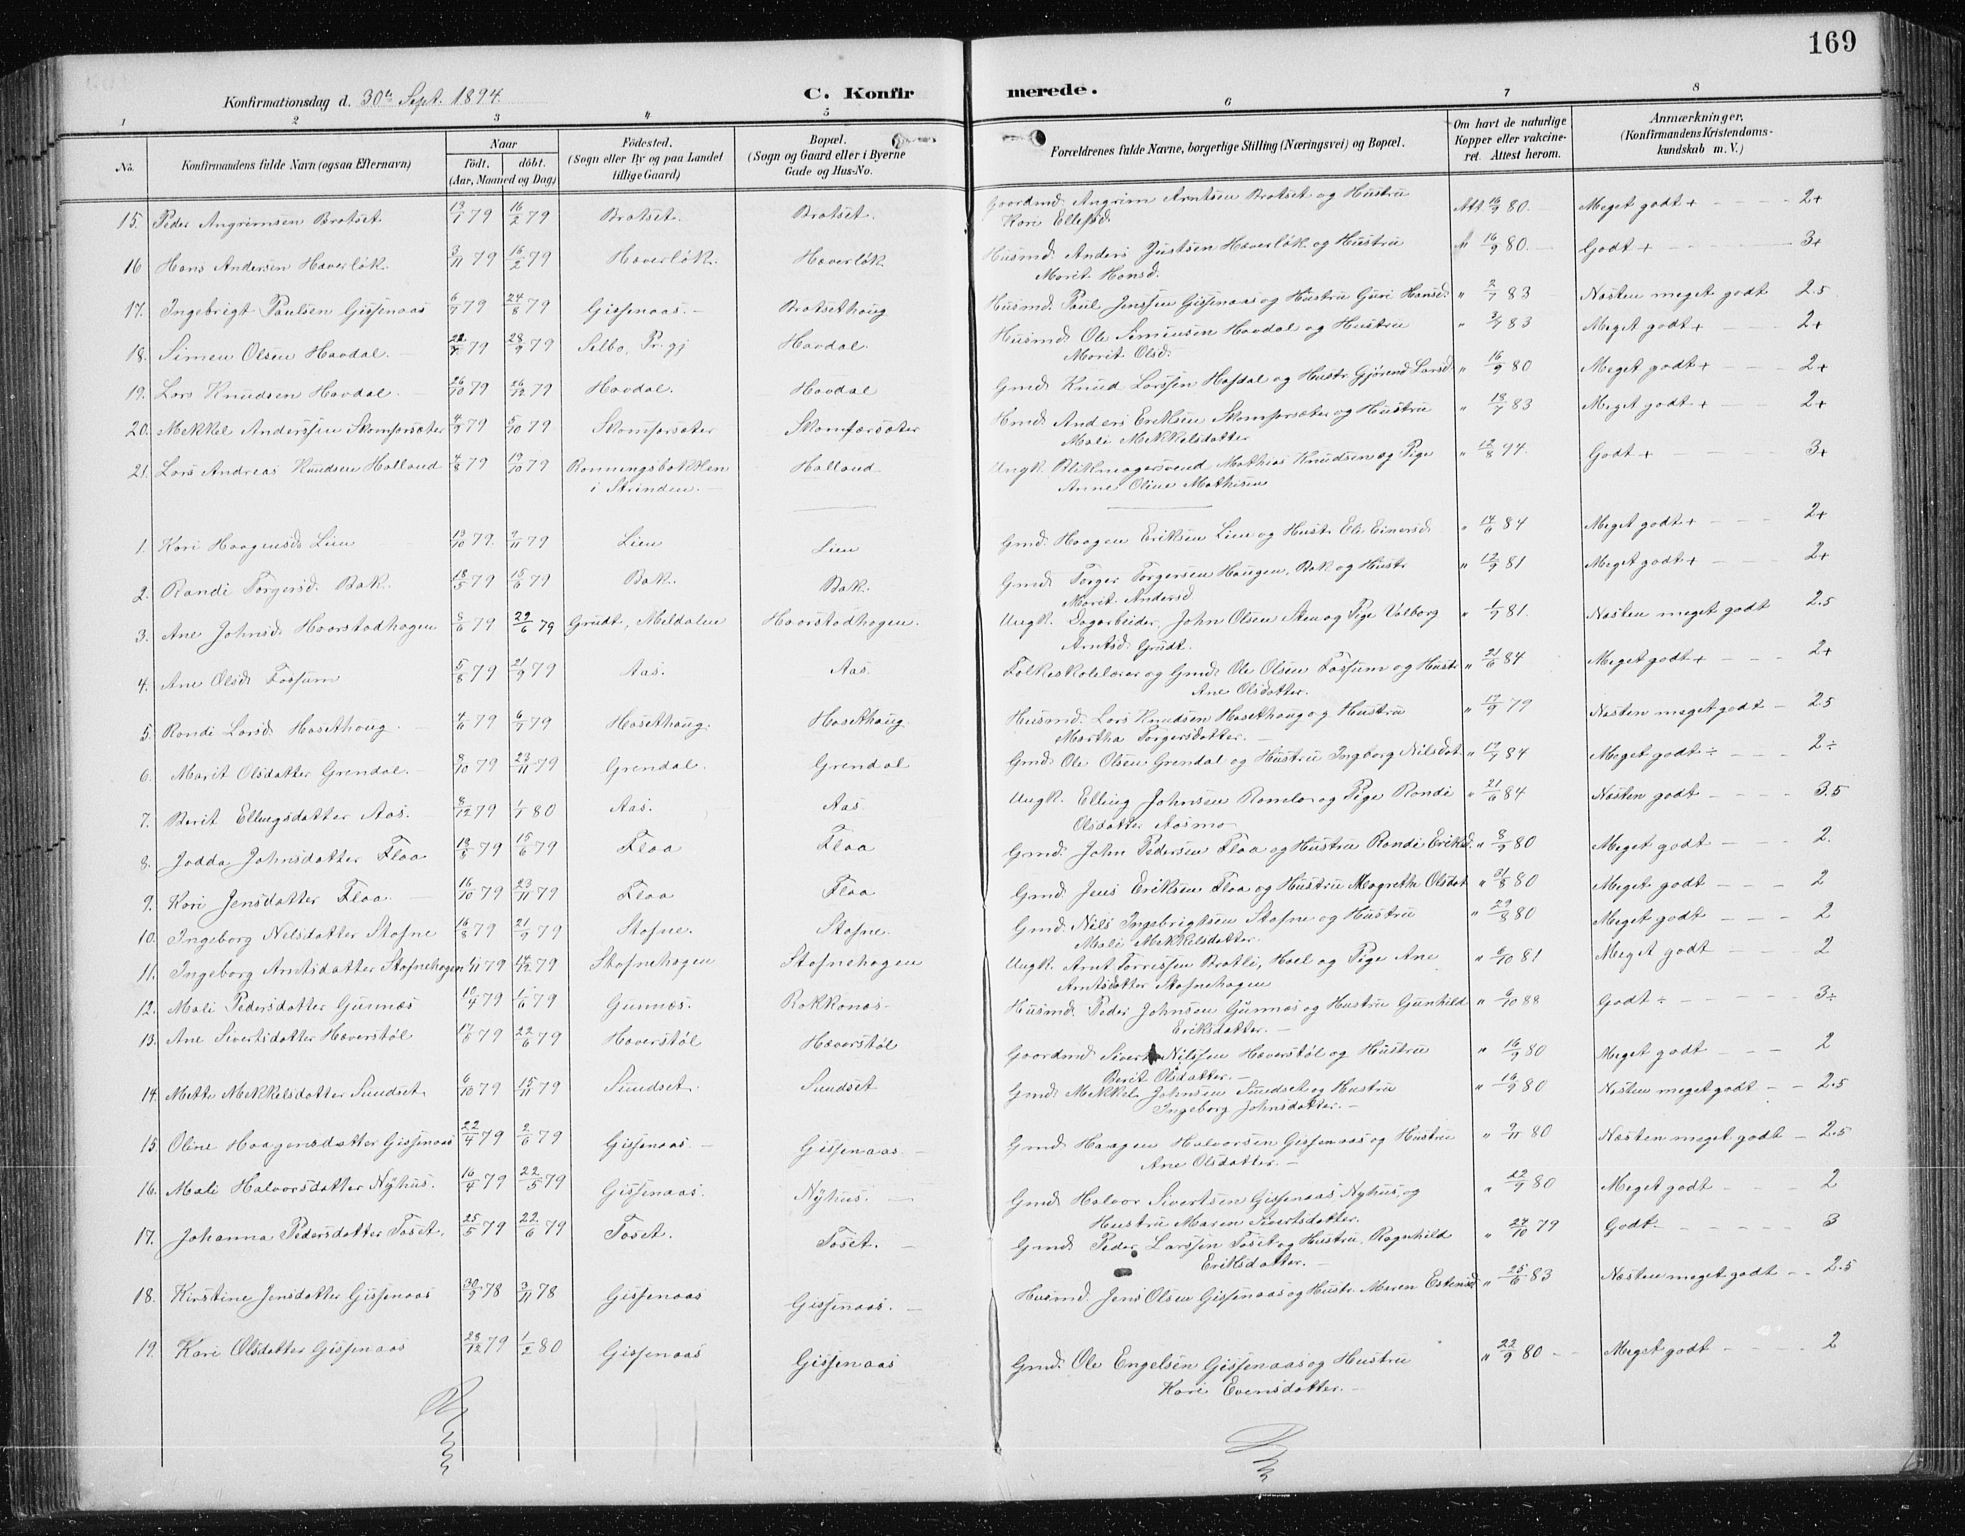 169
Konfirmationsdag d. 30te Sept. 1894.
C. Konfirmerede.
1 2 3 4 5 6 7 8
No. Konfirmandens fulde Navn (ogsaa Efternavn) Naar Født, døbt. (Aar, Maaned og Dag) Fødested. (Sogn eller By og paa Landet tillige Gaard) Bopæl. (Sogn og Gaard eller i Byerne Gade og Hus-No. Forældrenes fulde Navne, borgerlige Stilling (Næringsvei) og Bopæl. Om havt de naturlige Kopper eller vakcineret. Attest herom. Anmærkninger. (Konfirmandens Kristendomskundskab m. V.)
15. Peder Angrimsen Bratset 79 16/2 79 Bratset. Bratset. Gaardmd. Angrim Arntsen Bratset og Hustru Kari Ellefsd. Att. 16/9 80. Meget godt + 2+
16 Hans Andersen Hæverløk 79 16/2 79 Hæverløk. Hæverløk Husmd. Anders Justsen Hæverløk og Hustru Marit Hansd. 16/9 80. Godt + 3+
17. Ingebrigt Paulsen Gissenaas 6/7 79 24/8 79 Gissenaas. Bratsethaug Husmd. Paul Jenssen Gissenaas og Hustru Guri Hansd. " 2/7 83 Næsten meget godt 2.5
18. Simen Olsen Havdal. 79 28/9 79 Selbo, Pr.gj Havdal. Husmd. Ole Simensen Havdal og Hustru Marit Olsd. " 83 Meget godt + 2+
19. Lars Knudsen Havdal. 26/10 79 26/12 79 Havdal. Havdal Gmd. Knud Larssen Hafdal og Hustr. Gjørend Larsd. " 16/9 80 Meget godt + 2+
20. Mekkel Anderssen Skamfarsæter 4/9 79 5/10 79 Skamfarsæter Skamfærsæter Hmd. Anders Eriksen Skamfarsæter og Hustru Mali Mekkelsdatter " 18/7 83 Meget godt + 2+
21. Lars Andreas Knudsen Halland 4/8 79 19/10 79 Rønningsbakklen i Strinden. Halland Ungk. Blikmagersvend Mathias Knudsen og Pige Anne Oline Mathisen " 12/8 94. Godt + 3+
1. Kari Haagensd. Lien 19/10 79. 9/11 79 Lien Lien Gmd. Haagen Eriksen Lien og Hustr. Eli Einersd. " 84 Meget godt + 2+
2. Randi Torgersd. Bak. 18/5 79 15/6 79 Bak. Bak. Gmd. Torger Torgersen Haugen, Bak og Hustr Marit Andersd. " 12/9 81 Meget godt + 2+
3. Ane Johnsd. Haarstadhagen 79 22/6 79 Grudt, Meldalen Haarstadhagen. Ungk. Dagarbeider John Olsen Sten og Pige Valborg Arntsd. Grudt. " 81. Næsten meget godt 2.5
4. Ane Olsd. Fossum 5/8 79 21/9 79 Aas. Aas. Folkeskolelærer og Gmd. Ole Olsen Fossum og Hustr Ane Olsdatter. " 21/6 84 Meget godt + 2+
5. Randi Larsd. Hasethaug 4/6 79 6/7 79 Hasethaug. Hasethaug Husmd. Lars Knudsen Hasethaug og Hustru Martha Torgersdatter. " 12/9 79 Næsten meget godt 2.5
6. Marit Olsdatter Grendal. 8/10 79 23/11 79 Grendal. Grendal Gmd. Ole Olsen Grendal og Hustru Ingborg Nilsdat. " 84 Meget godt ÷ 2÷
7. Berit Ellingsdatter Aas. 8/12 79 1/1 80 Aas. Aas. Ungk. Elling Johnsen Ramlo og Pige Randi Olsdatter Aasmo " 21/6 84 Næsten godt 3.5
8. Jodda Johnsdatter Floa 79 15/6 79 Floa Floa Gmd. John Pedersen Floa og Hustru Randi Eriksd. " 8/9 80 Meget godt 2.
9. Kari Jensdatter Floa. 16/10 79 23/11 79 Floa Floa Gmd. Jens Eriksen Floa og Hustru Magrethe Olsdat. " 31/8 80 Meget godt 2
10. Ingeborg Nilsdatter Stafne 16/8 79 21/9 79 Stafne. Stafne. Gmd. Nils Ingebrigtsen Stafne og Hustru Mali Mekkelsdatter. " 29/8 80 Meget godt 2
11. Ingeborg Arntsdatter Stafnehagen 1/11 79 14/12 79 Stafnehagen Stafnehagen Ungk. Arnt Torrissen Bratli, Hoel og Pige Ane Arntsdatter Stafnehagen " 81 Meget godt 2
12. Mali Pedersdatter Gunnæs 79 1/6 79 Gunnæs. Rokkonas Husmd. Peder Johnsen Gunnæs og Hustru Gunhild Eriksdatter. " 88 Godt ÷ 3÷
13. Ane Sivertsdatter Hæverstøl 79 22/6 79 Hæverstøl Hæverstøl Gaardmd. Sivert Nilssen Hæverstøl og Hustru Berit Olsdatter. " 16/9 80 Meget godt 2
14. Mette Mekkelsdatter Sundset. 6/10 79 15/11 79 Sundset. Sundset Gmd. Mekkel Johnsen Sundset og Hustru Ingeborg Johnsdatter. " 16/9 80 Næsten meget godt 2.5
15. Oline Haagensdatter Gissenaas 22/4 79 2/6 79 Gissenaas. Gissenaas. Gmd. Haagen Halvorsen Gissenaas og Hustru Ane Olsdatter. " 9/11 80 Næsten meget godt 2.5
16. Mali Halvorsdatter Nyhus. 16/4 79 22/5 79 Gissenaas. Nyhus. Gmd. Halvor Sivertsen Gissenaas Nyhus, og Hustru Maren Sivertsdatter. " 22/9 80 Meget godt 2
17. Johanna Pedersdatter Toset. 25/5 79 22/6 79 Toset. Toset. Gmd. Peder Larssen Toset og Hustru, Ragnhild Eriksdatter. " 79 Godt 3
18. Kirstine Jensdatter Gissenaas 30/9 78 3/11 78 Gissenaas Gissenaas. Husmd. Jens Olsen Gissenaas og Hustr. Maren Estensd. " 25/6 83 Næsten meget godt 2.5
19. Kari Olsdatter Gissenaas 28/12 79 1/2 80 Gissenaas Gissenaas Gmd. Ole Engelsen Gissenaas og Hustru Kari Evensdatter. " 22/9 80 Meget godt 2